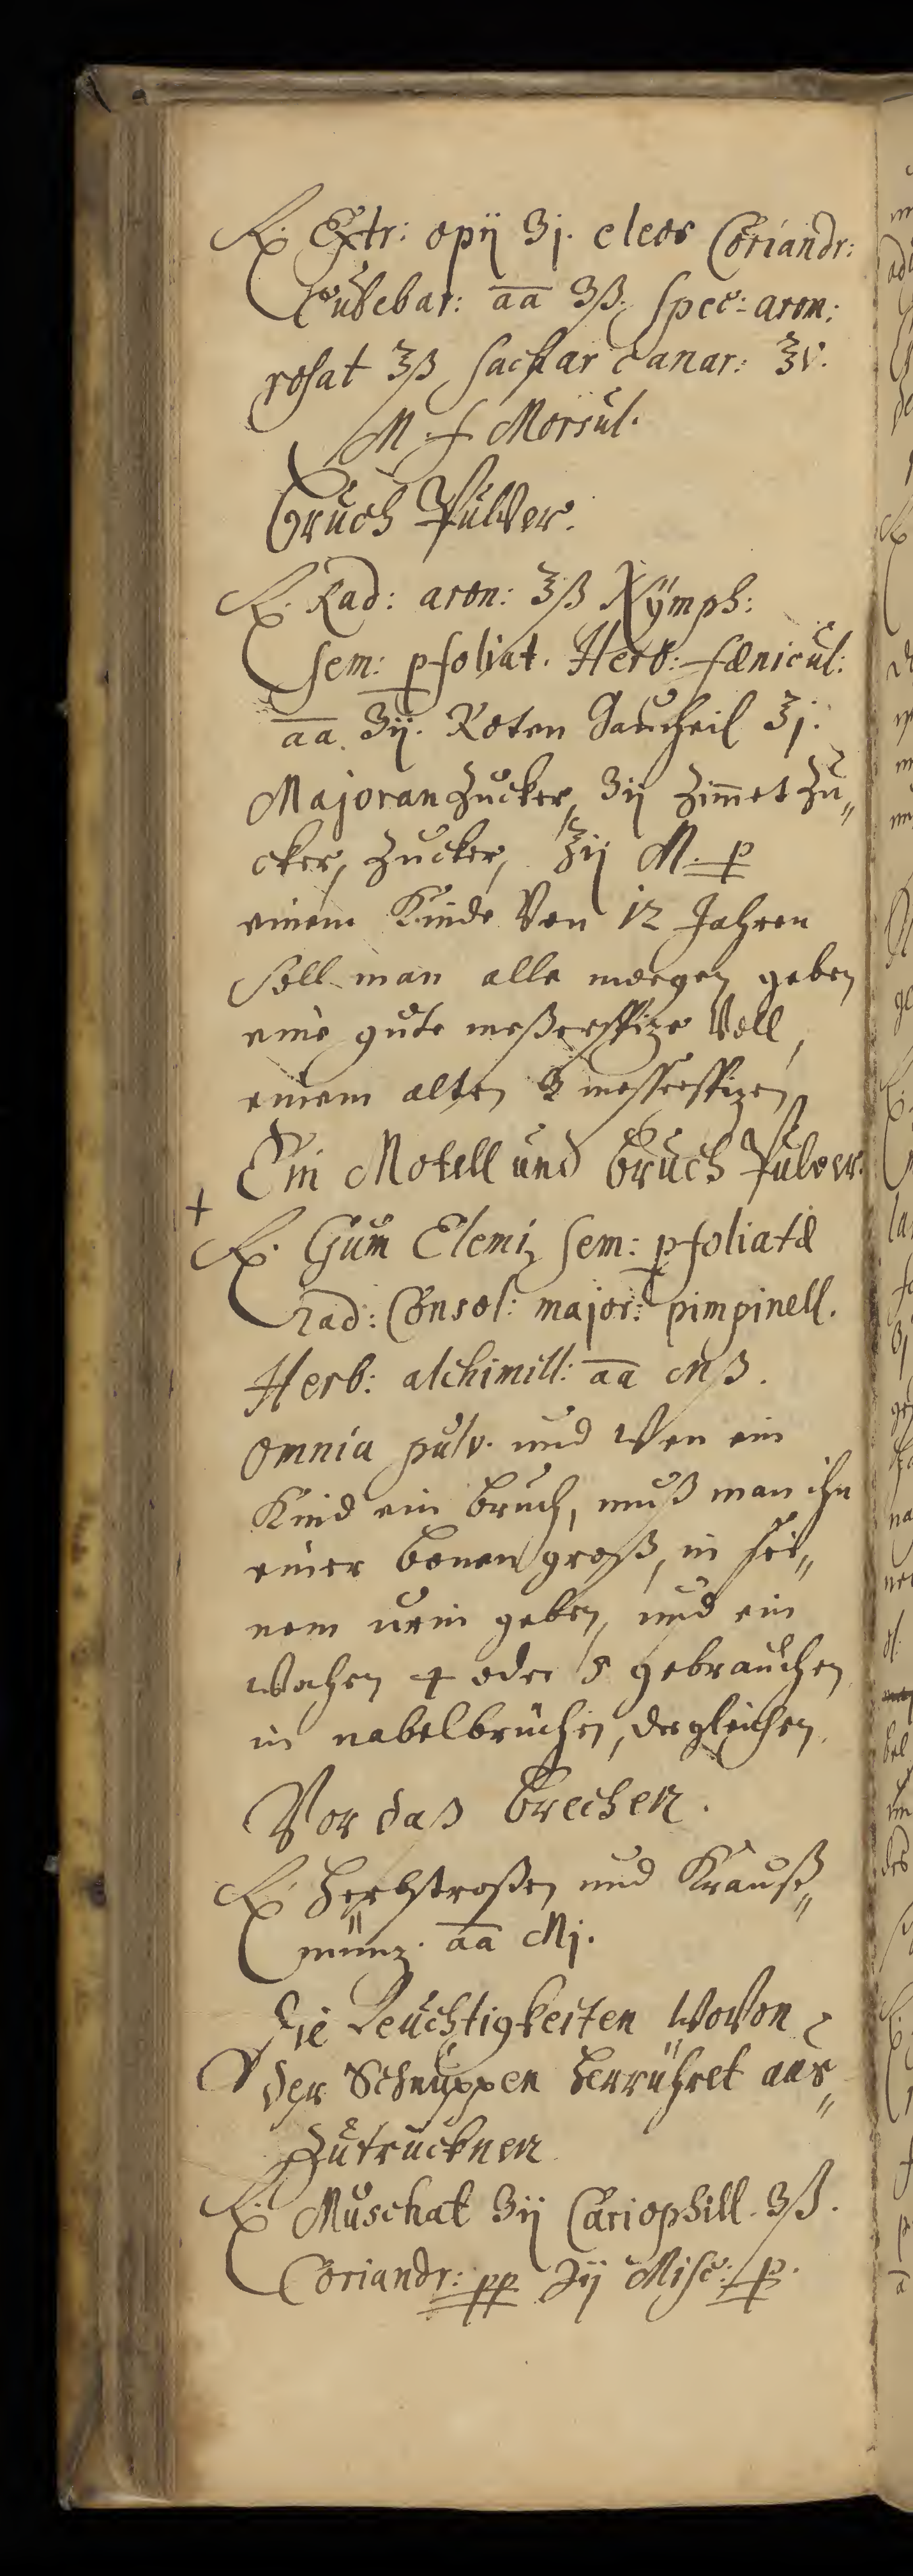 ℞. Extr: opij ʒj. eleos Coriandr:
Cubebar: a͞a ʒß. Spec: arom:
rosat ʒß, Sachar canar: ℥v.
M f Morsul.
Bruch Pulver.
℞. Rad: aron: ℥ß Nÿmph:
Sem: pfoliat. Herb: fænicul:
a͞a. ʒij. Roten Gaucheil ℥j.
Majoran Zucker, ʒij Zim̅et Zu„
cker, Zucker, ℥ij M. p
einem Kinde Von 12 Jahren
Soll man alle morgen geben
eine gute meßerspize Voll,
einem alten 2 messerspizen
Ein Motell und Bruch Pulver.
+
℞. Gum Elemi, Sem: pfoliatæ
rad: Consol: major: pimpinell.
Herb: alchimill: a͞a Mß.
omnia pulv. und Wen ein
Kind ein bruch, muß man ihn
einer bonen groß, in sei„
nem urin geben, und ein
Wochen 4 oder 5 gebrauchen
in nabelbrüchen, dergleichen
Vor daß Brechen.
℞ Herbstroßen und Krauß„
münz. a͞a Mj.
Die Feuchtigkeiten WoVon
der Schnuppen herrühret aus„
Zutrucknen
℞. Muschat ʒij Cariophill. ʒß.
Coriandr: pp ʒij Misc: f p.